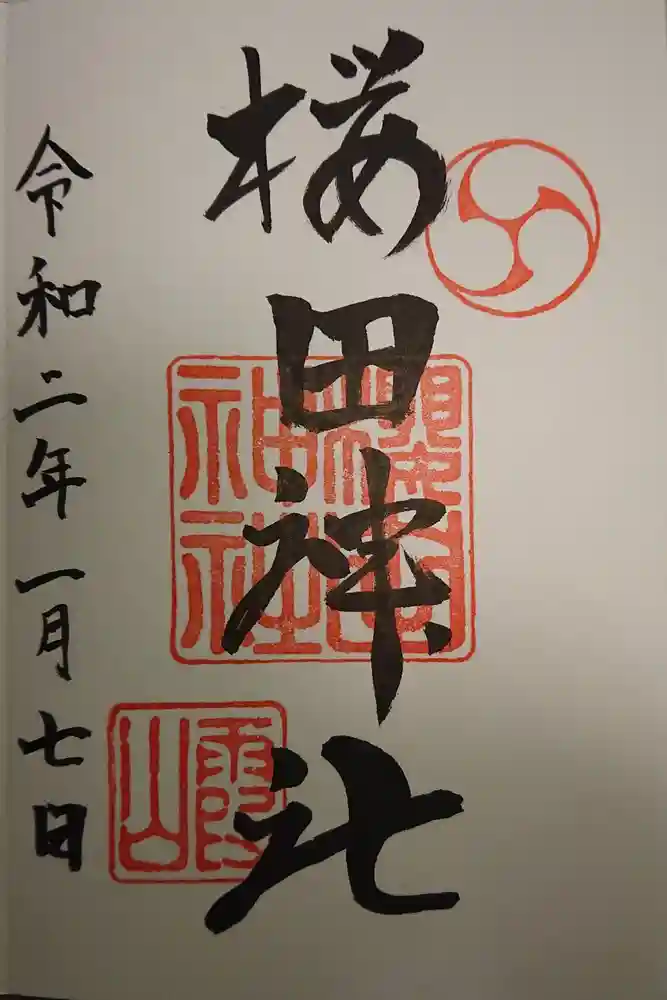 桜田神社
櫻田
神社
霞
山
令和二年一月七日